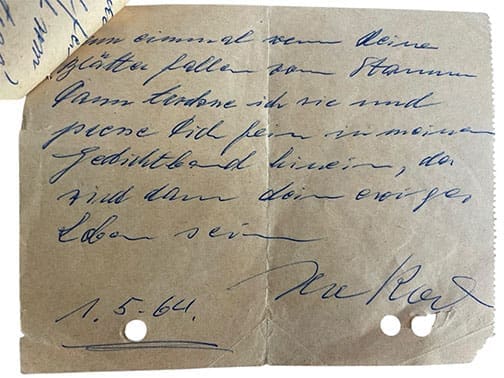 einmal wenn deine
Blätter fallen vom Stamm
dann trockne ich sie und
presse Dich fein in meinen
Gedichtband hinein, da
wird dann dein ewiges
Leben sein
1.5-64.